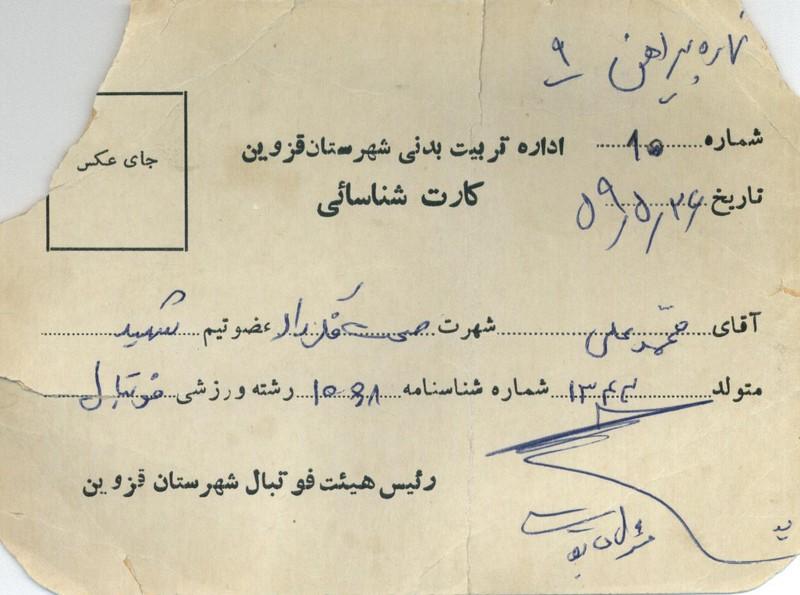 نمره پیراهن ۹
شماره ۱۰
اداره تربیت بدنی شهرستان قزوین
تاریخ ۵۹/۵/۲۶
کارت شناسائی
جای عکس
آقای محمد علی شهرت صحت گلزار عضو تیم شهید
متولد ۱۳۴۲ شماره شناسنامه رشته ورزشی فوتبال
رئیس هیئت فوتبال شهرستان قزوین